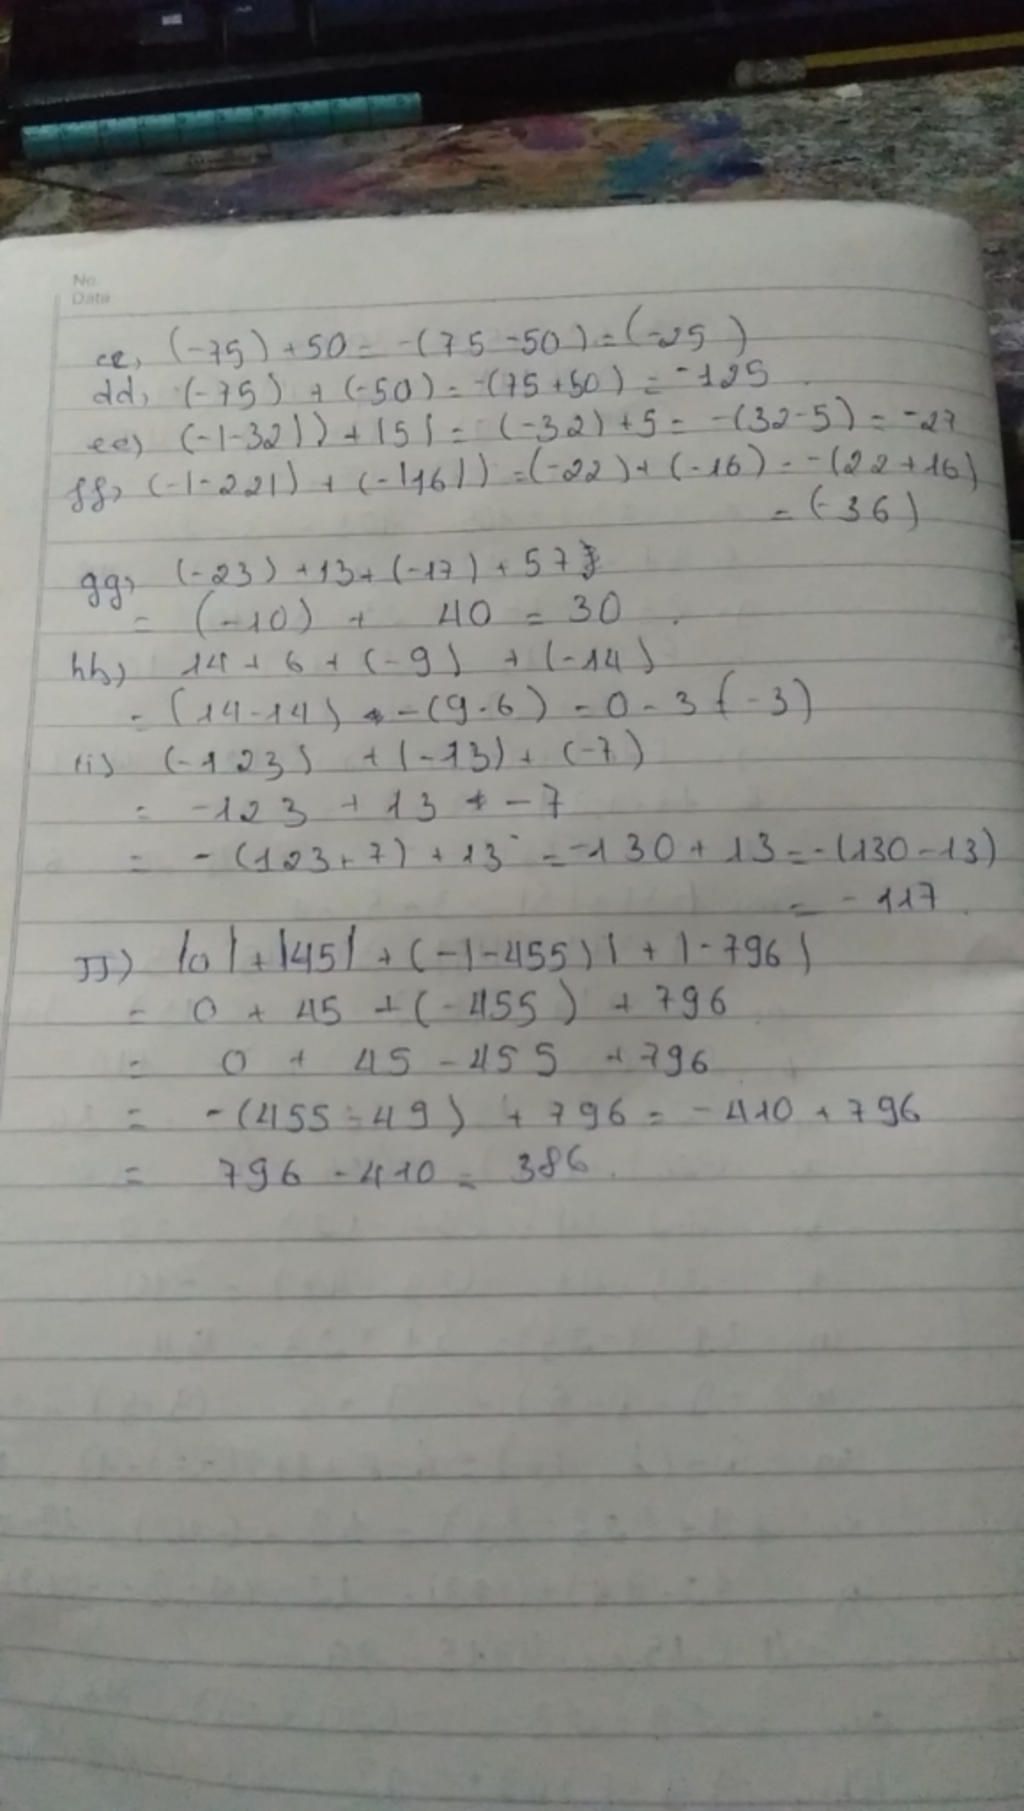 No.
Date
cc, (-75) + 50 = -(75 - 50) = (-25)
dd, (-75) + (-50) = -(75 + 50) = -125
ee) (-|-32|) + |5| = (-32) + 5 = -(32-5) = -27
ff, (-|-22|) + (-|16|) = (-22) + (-16) = -(22 + 16)
= (-36)
gg, (-23) + 13 + (-17) + 57
= (-10) + 40 = 30
hh) 14 + 6 + (-9) + (-14)
= (14-14) - (9-6) = 0 - 3 (-3)
ii) (-123) + |-13| + (-7)
= -123 + 13 - 7
= -(123 + 7) + 13 = -130 + 13 = -(130 - 13)
= -117
JJ) |0| + |45| + (-|-455)| + |-796|
= 0 + 45 + (-455) + 796
= 0 + 45 - 455 + 796
= -(455 - 49) + 796 = -410 + 796
= 796 - 410 = 386